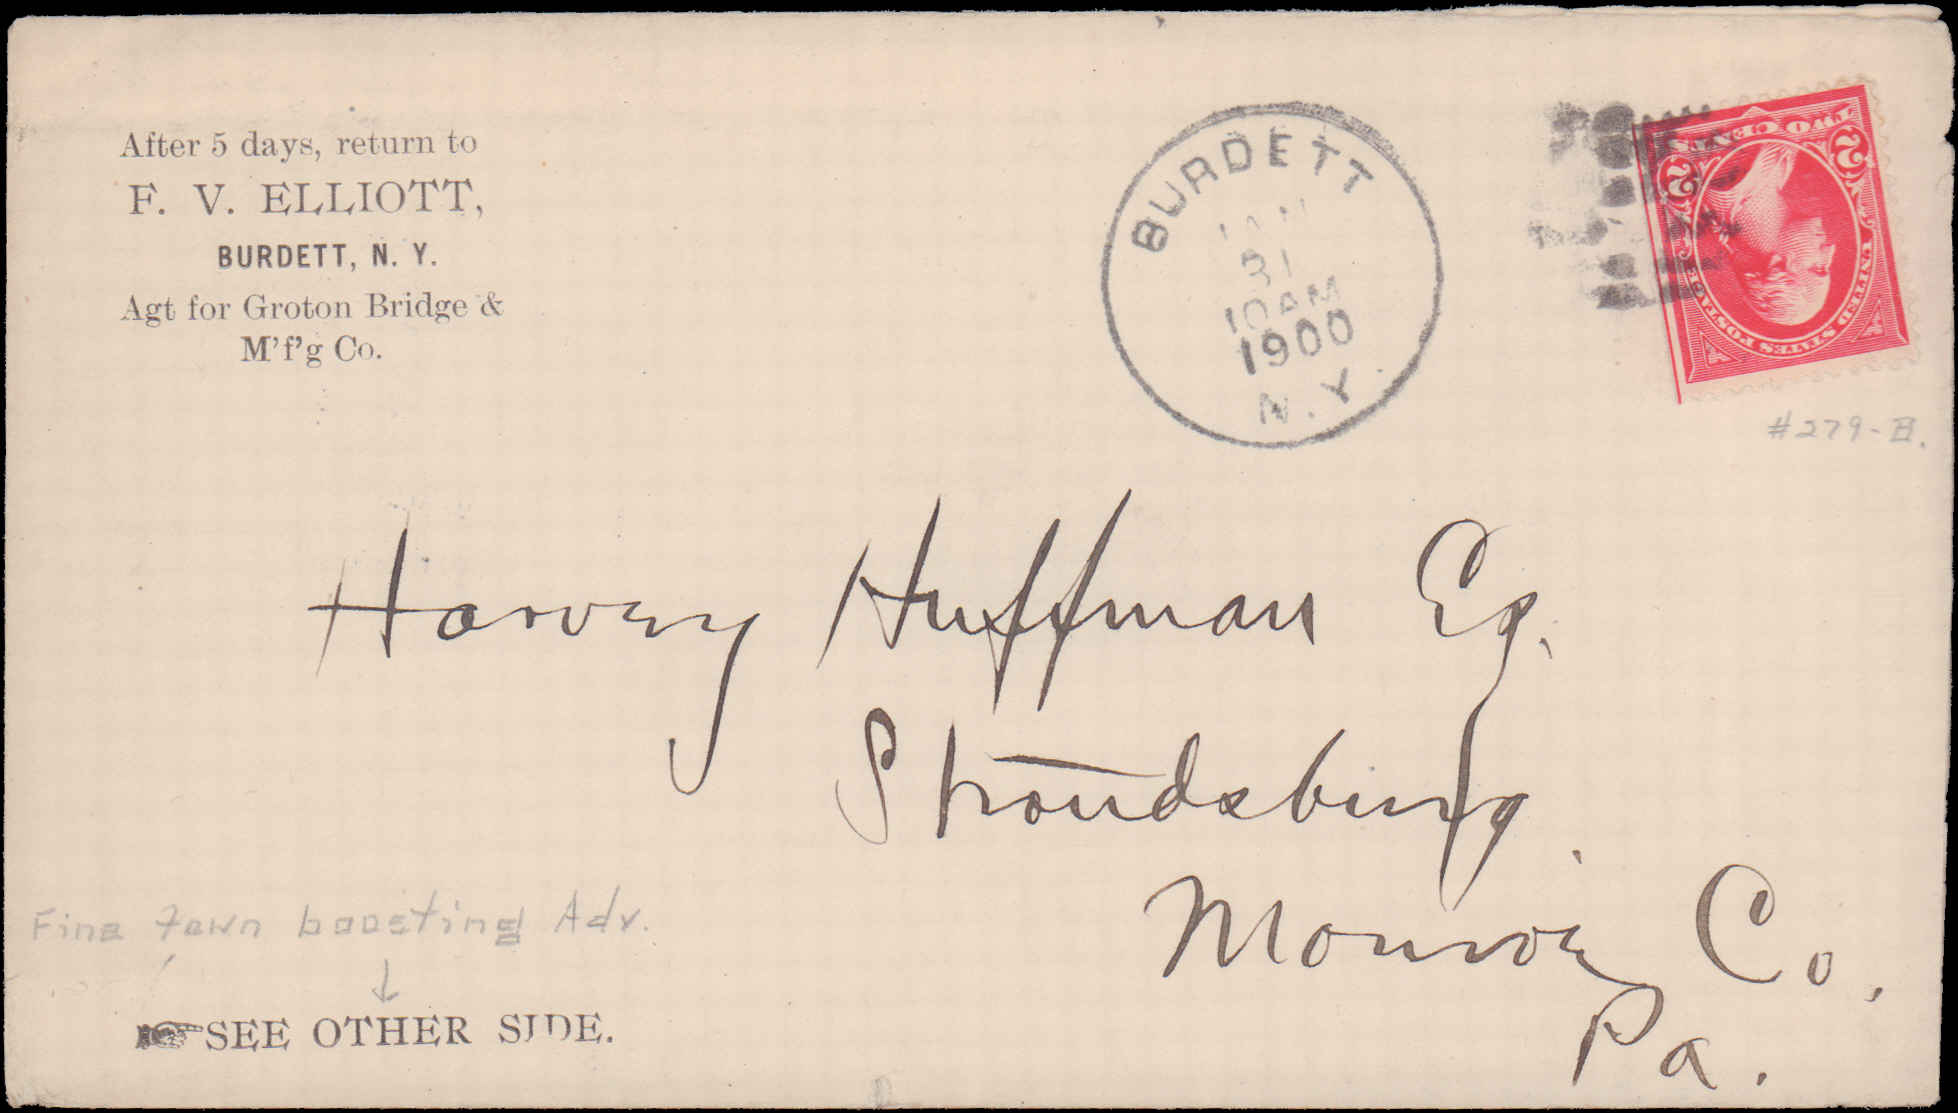 After 5 days, return to
F. V. ELLIOTT,
BURDETT, N. Y.
Agt for Groton Bridge &
M'f'g Co.
BURDETT
JAN
31
10 AM
1900
N.Y.
TWO CENTS
2 2
UNITED STATES POSTAGE
#279-B.
Harvey Huffman Esq.
Stroudsburg
Monroe Co.
Pa.
Fine Town boosting Adv.
SEE OTHER SIDE.